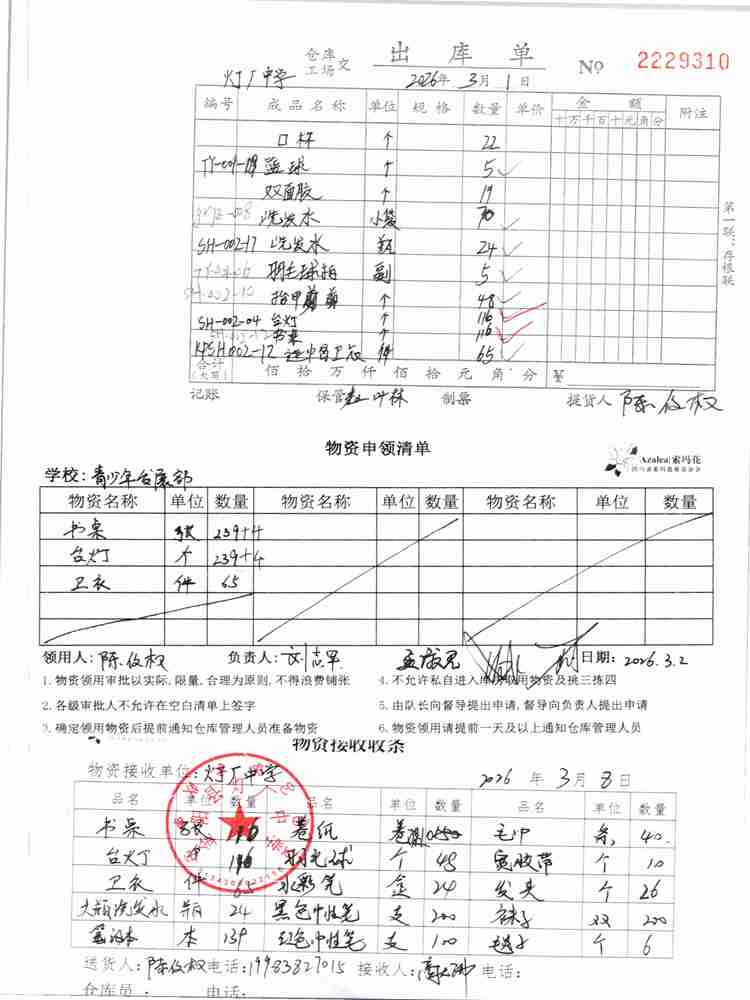 仓库
工场 交 出库单 № 2229310
灯厂中学 2026年3月1日
编号 成品名称 单位 规格 数量 单价 金额 附注
十万千百十元角分
口杯 个 22
篮球 个 5
双面胶 个 19
洗发水 小袋 70
SH-002-17 洗发水 瓶 24
羽毛球拍 副 5
指甲剪 个 48
SH-002-04 台灯 个 116
书桌 116
卫衣 件 65
合计(大写) 佰拾万仟佰拾元角分 ¥
记账 保管 制票 提货人 陈俊权
第一联:存根联
物资申领清单
Azalea|索玛花
学校:青少年发展部
物资名称 单位 数量 物资名称 单位 数量 物资名称 单位 数量
书桌 张 239+4
台灯 个 239+4
卫衣 件 65
领用人:陈俊权 负责人:刘志军 日期:2026.3.2
1.物资领用审批以实际,限量,合理为原则,不得浪费铺张 4.不允许私自进入库房取用物资及挑三拣四
2.各级审批人不允许在空白清单上签字 5.由队长向督导提出申请,督导向负责人提出申请
3.确定领用物资后提前通知仓库管理人员准备物资 6.物资领用请提前一天及以上通知仓库管理人员
物资接收收条
物资接收单位:灯厂中学 2026年3月8日
品名 单位 数量 品名 单位 数量 品名 单位 数量
书桌 张 116 卷纸 卷 毛巾 条 40
台灯 个 116 羽毛球 个 45 宽胶带 个 10
卫衣 件 水彩笔 盒 24 发夹 个 26
大瓶洗发水 瓶 24 黑色中性笔 支 200 袜子 双 200
笔记本 本 139 红色中性笔 支 100 毽子 个 6
送货人:陈俊权 电话:19983827015 接收人: 电话:
仓库员: 电话: